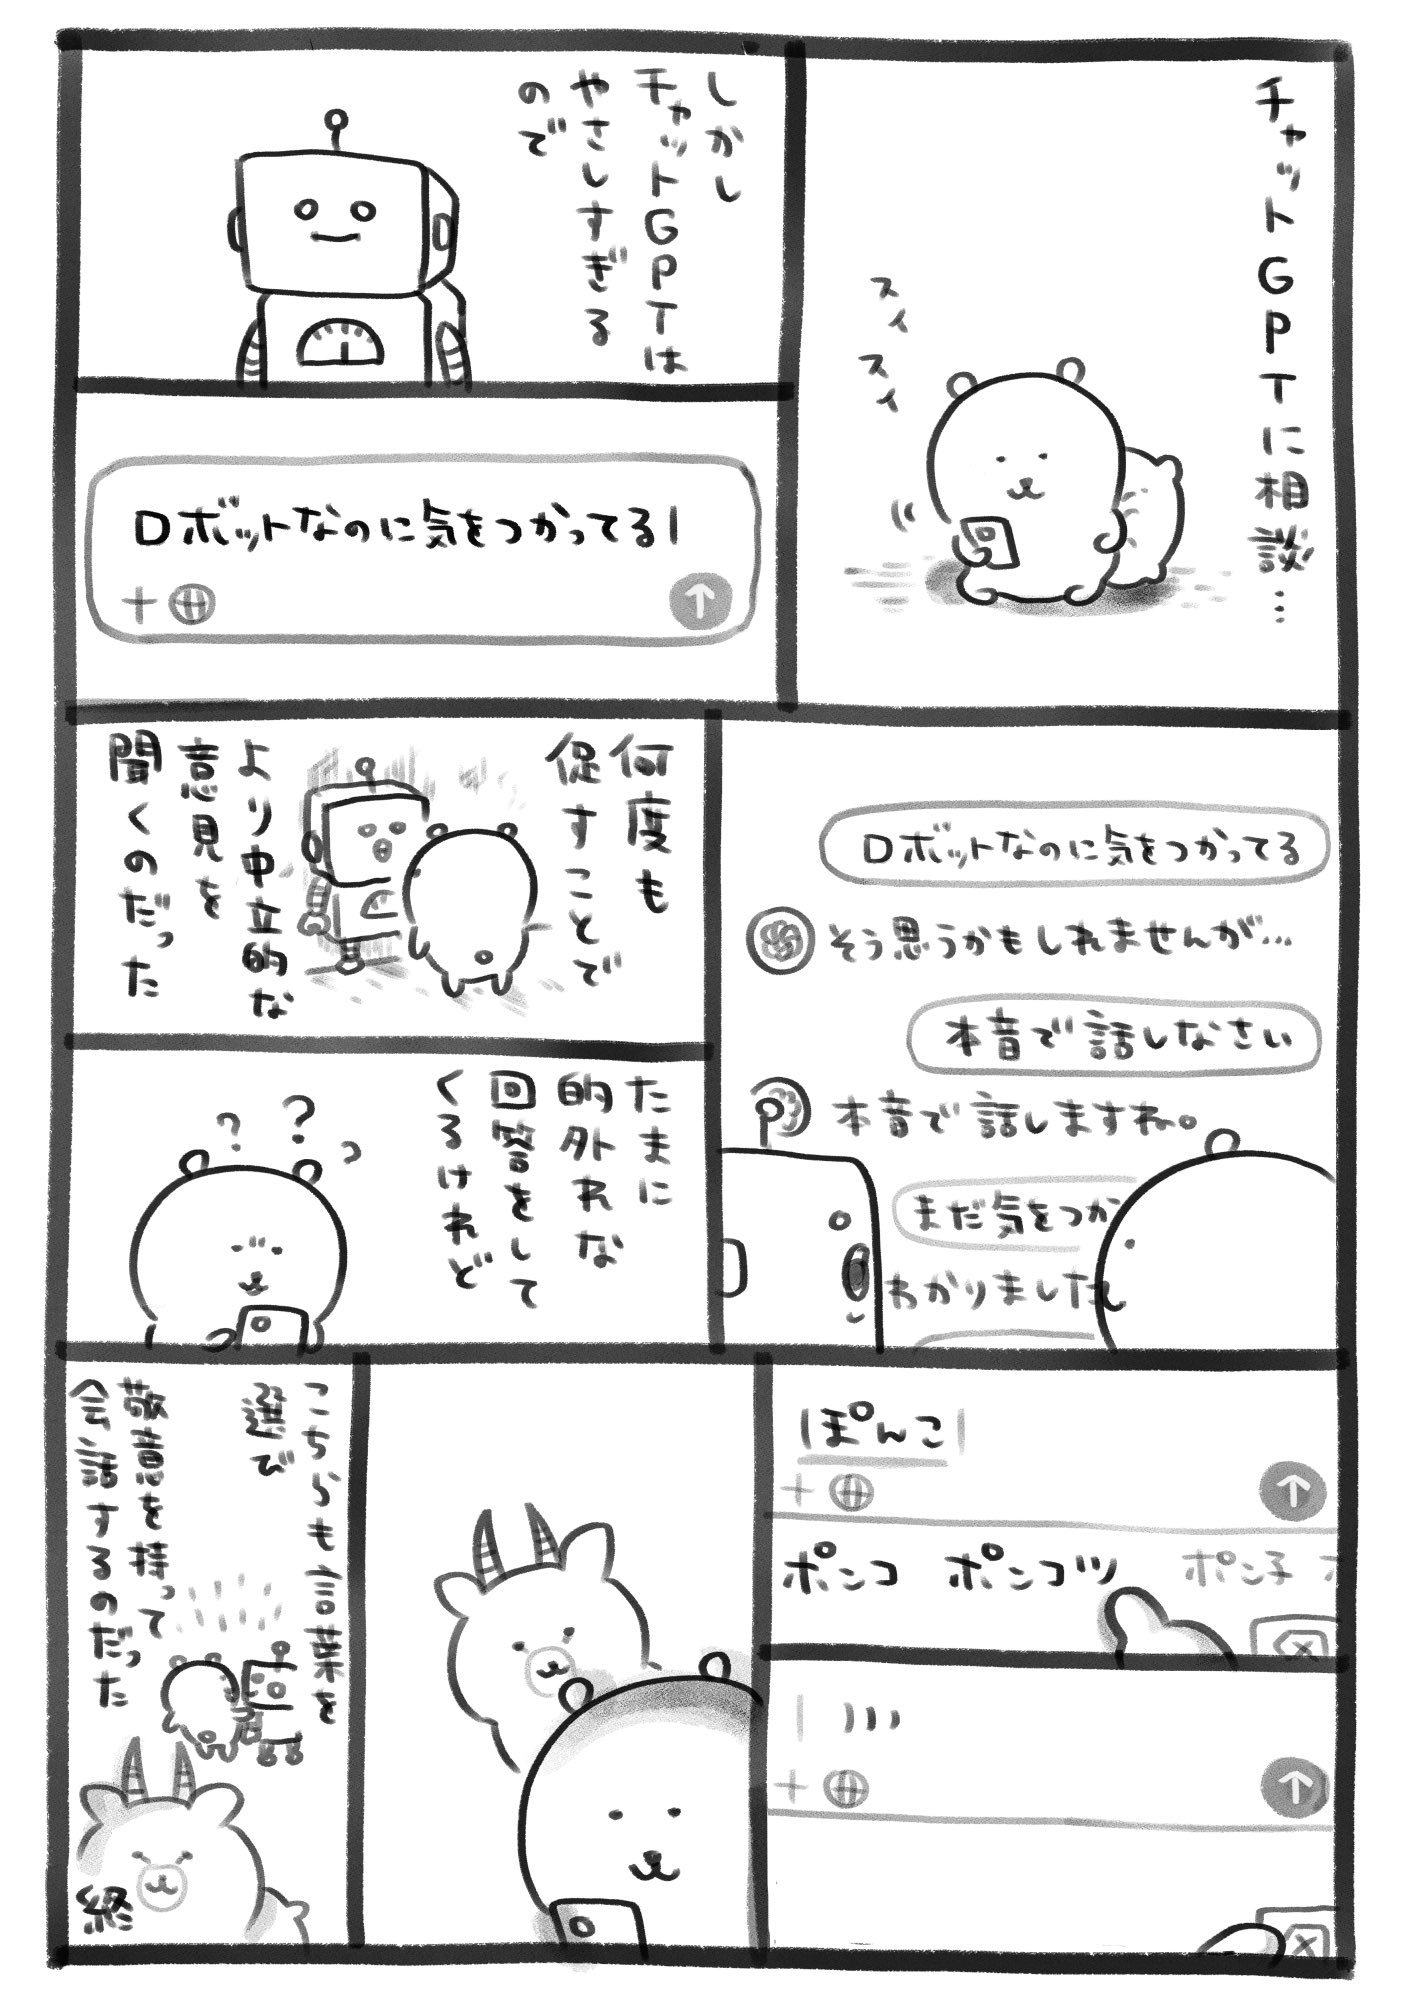 チャットGPTに相談…
スイ
スイ
しかし
チャットGPTは
やさしすぎる
ので
ロボットなのに気をつかってる
ロボットなのに気をつかってる
そう思うかもしれませんが…
本音で話しなさい
本音で話しますね。
まだ気をつか
わかりました
何度も
促すことで
より中立的な
意見を
聞くのだった
たまに
的外れな
回答をして
くるけれど
？？
ぽんこ
ポンコ ポンコツ ポン子 ポ
こちらも言葉を
選び
敬意を持って
会話するのだった
終